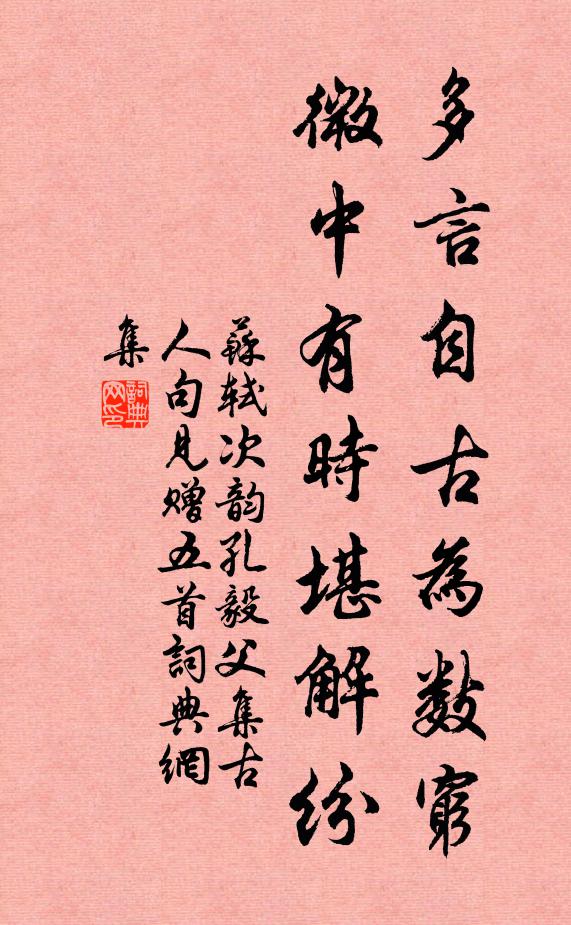 多言自古為數窮
微中有時堪解紛
蘇軾次韵孔毅父集古
人句見贈五首詞典網
集
詞典
网印